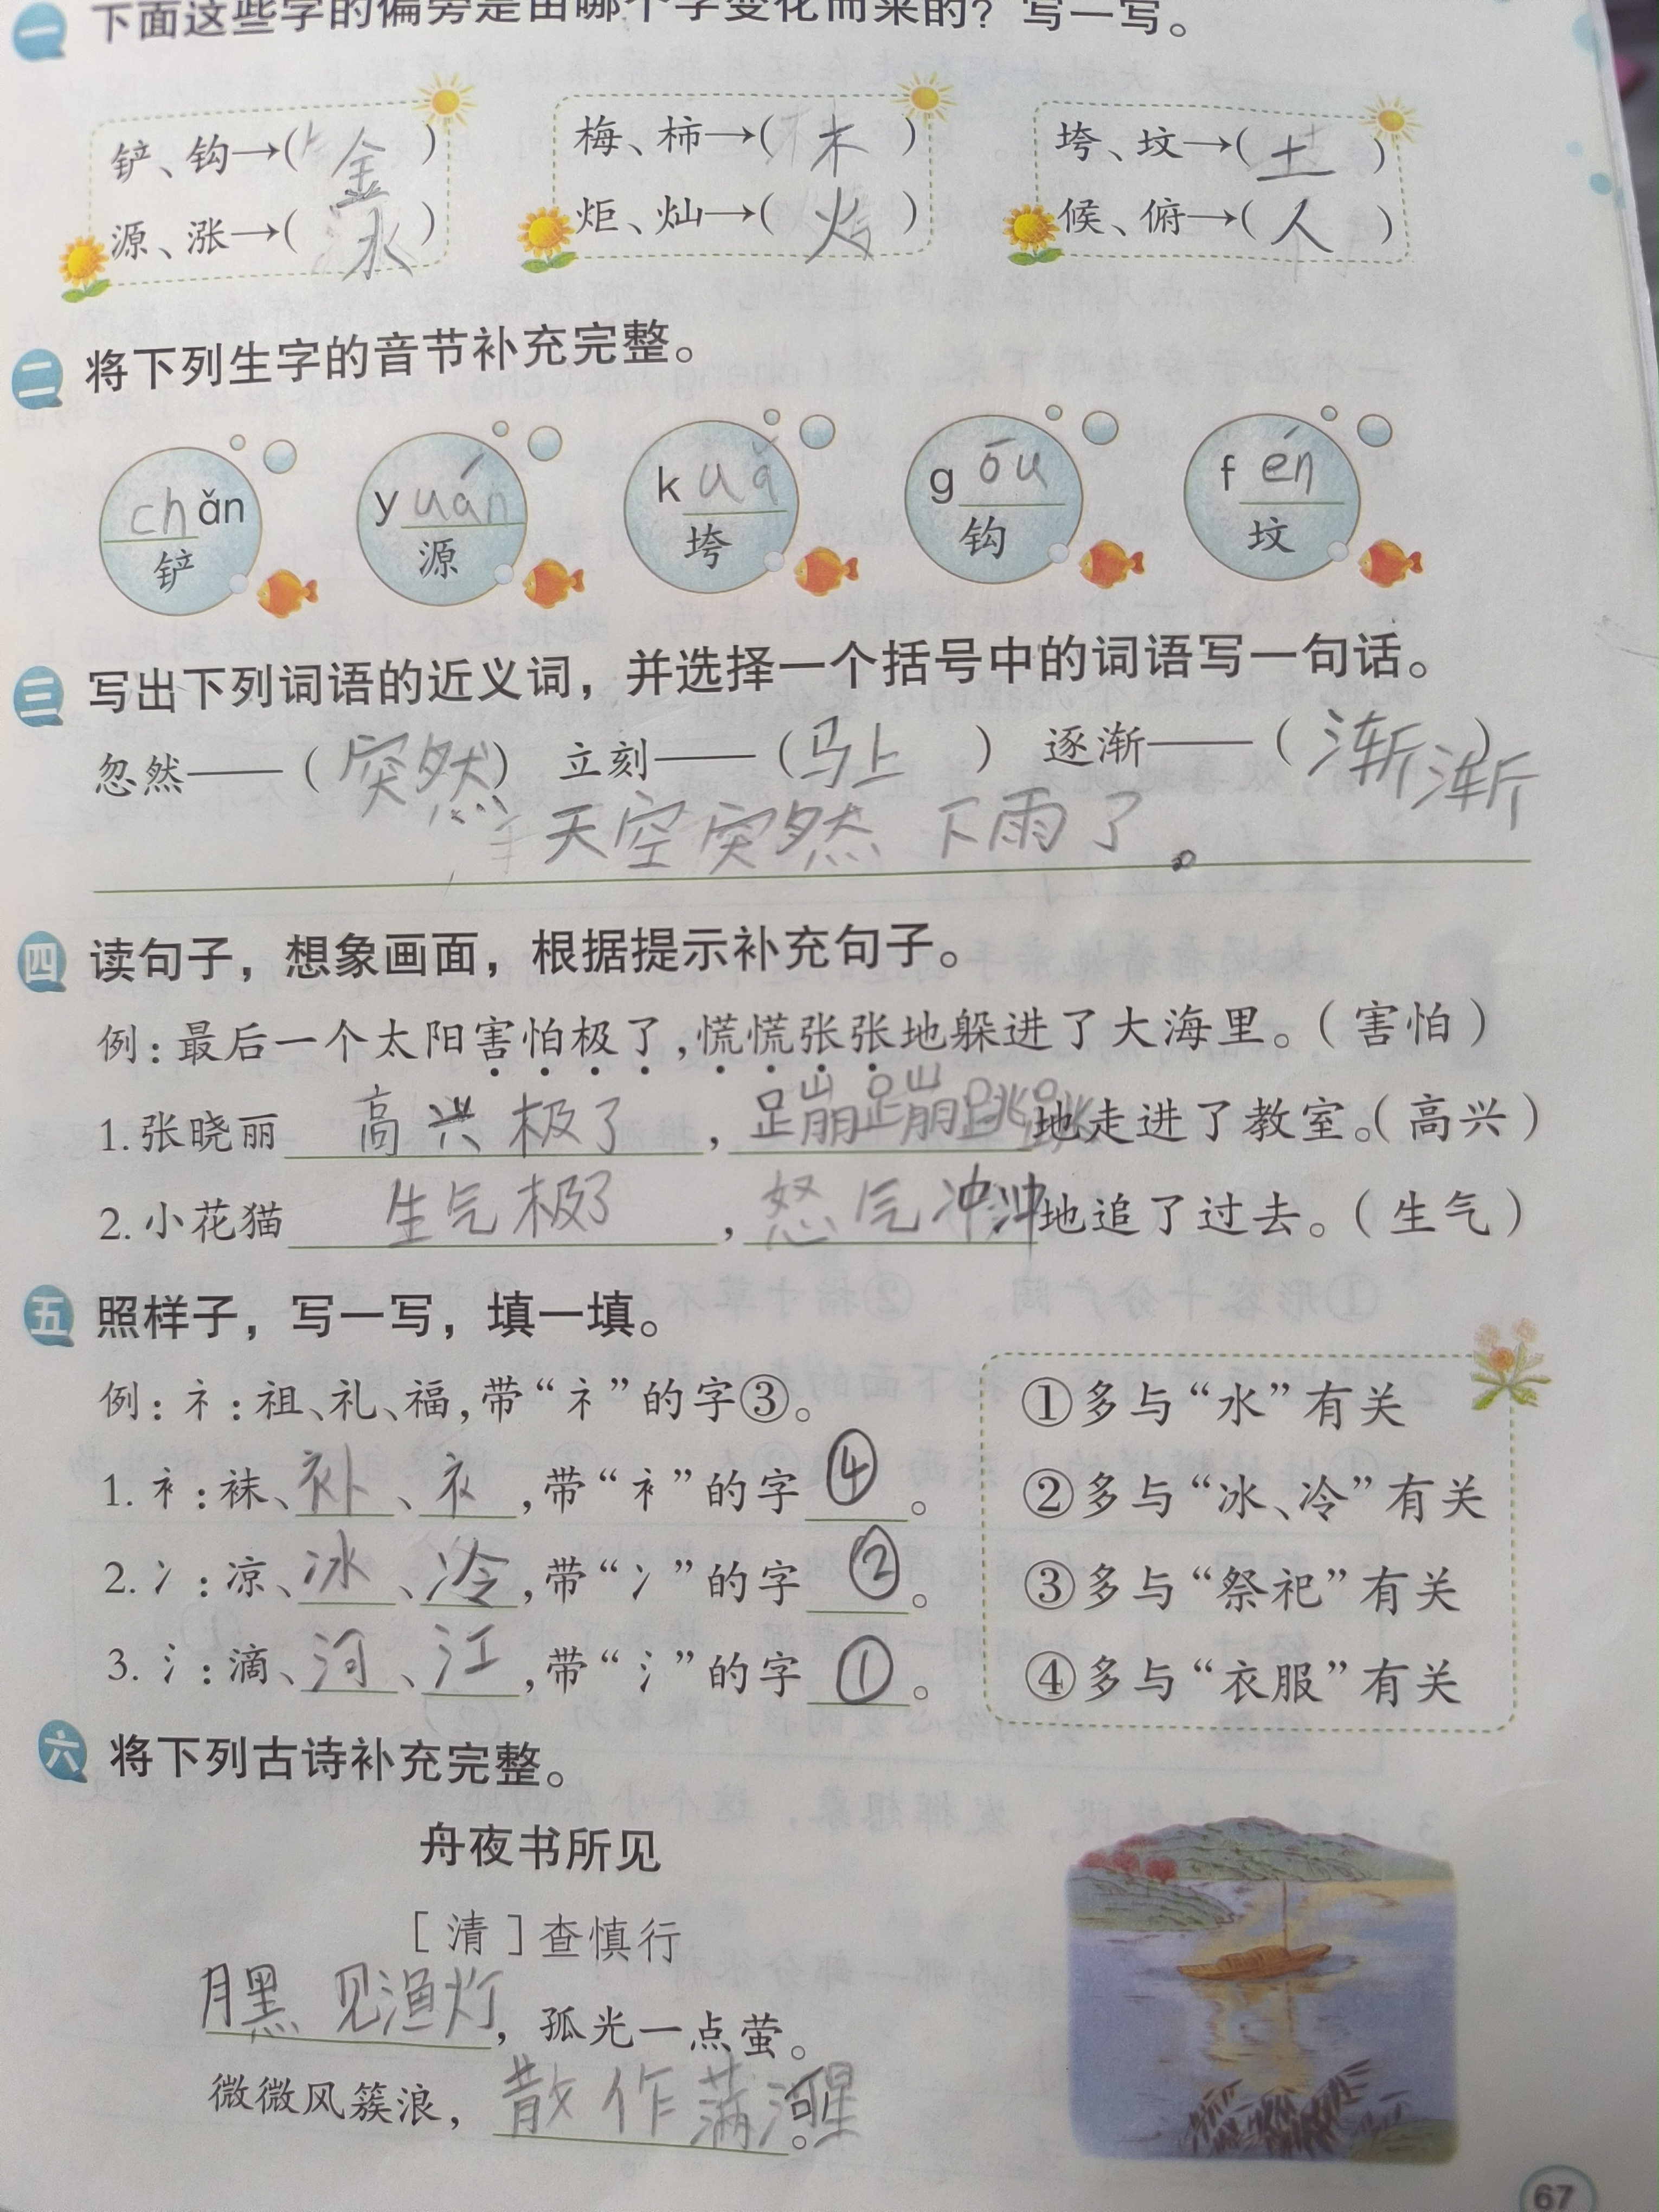 一 下面这些字的偏旁是由哪个字变化而来的？写一写。
铲、钩→(金) 梅、柿→(木) 垮、坟→(土)
源、涨→(水) 炬、灿→(火) 候、俯→(人)
二 将下列生字的音节补充完整。
chǎn yuán kuǎ gōu fén
铲 源 垮 钩 坟
三 写出下列词语的近义词，并选择一个括号中的词语写一句话。
忽然——(突然) 立刻——(马上) 逐渐——(渐渐)
天空突然下雨了。
四 读句子，想象画面，根据提示补充句子。
例：最后一个太阳害怕极了，慌慌张张地躲进了大海里。(害怕)
1.张晓丽高兴极了，蹦蹦跳跳地走进了教室。(高兴)
2.小花猫生气极了，怒气冲冲地追了过去。(生气)
五 照样子，写一写，填一填。
例：礻：祖、礼、福，带“礻”的字③。
1.衤：袜、补、衣，带“衤”的字④。
2.冫：凉、冰、冷，带“冫”的字②。
3.氵：滴、河、江，带“氵”的字①。
①多与“水”有关
②多与“冰、冷”有关
③多与“祭祀”有关
④多与“衣服”有关
六 将下列古诗补充完整。
舟夜书所见
[清]查慎行
月黑见渔灯，孤光一点萤。
微微风簇浪，散作满河星。
67